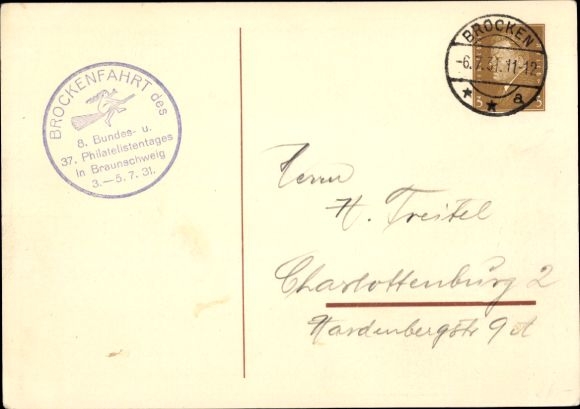 BROCKENFAHRT des
8. Bundes- u.
37. Philatelistentages
in Braunschweig
3.—5.7.31.
BROCKEN
-6.7.31.11-12
* * a
3 3
Herrn
H. Treitel
Charlottenburg 2
Hardenbergstr 9A